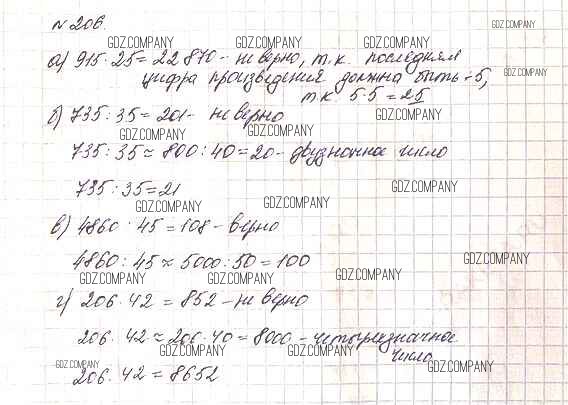 № 206.
GDZ.COMPANY
GDZ.COMPANY GDZ.COMPANY GDZ.COMPANY
а) 915·25=22870 - не верно, т.к. последняя
цифра произведения должна быть -5,
GDZ.COMPANY
т.к. 5·5=25
GDZ.COMPANY
б) 735:35=201 - не верно
GDZ.COMPANY GDZ.COMPANY
735:35≈800:40=20 - двузначное число
GDZ.COMPANY
735:35=21
GDZ.COMPANY GDZ.COMPANY
в) 4860 : 45=108 - верно
4860:45≈5000:50=100
GDZ.COMPANY GDZ.COMPANY GDZ.COMPANY
г) 206·42=852 - не верно
GDZ.COMPANY
206·42≈200·40=8000 - четырехзначное
число
GDZ.COMPANY GDZ.COMPANY
GDZ.COMPANY GDZ.COMPANY
206·42=8652